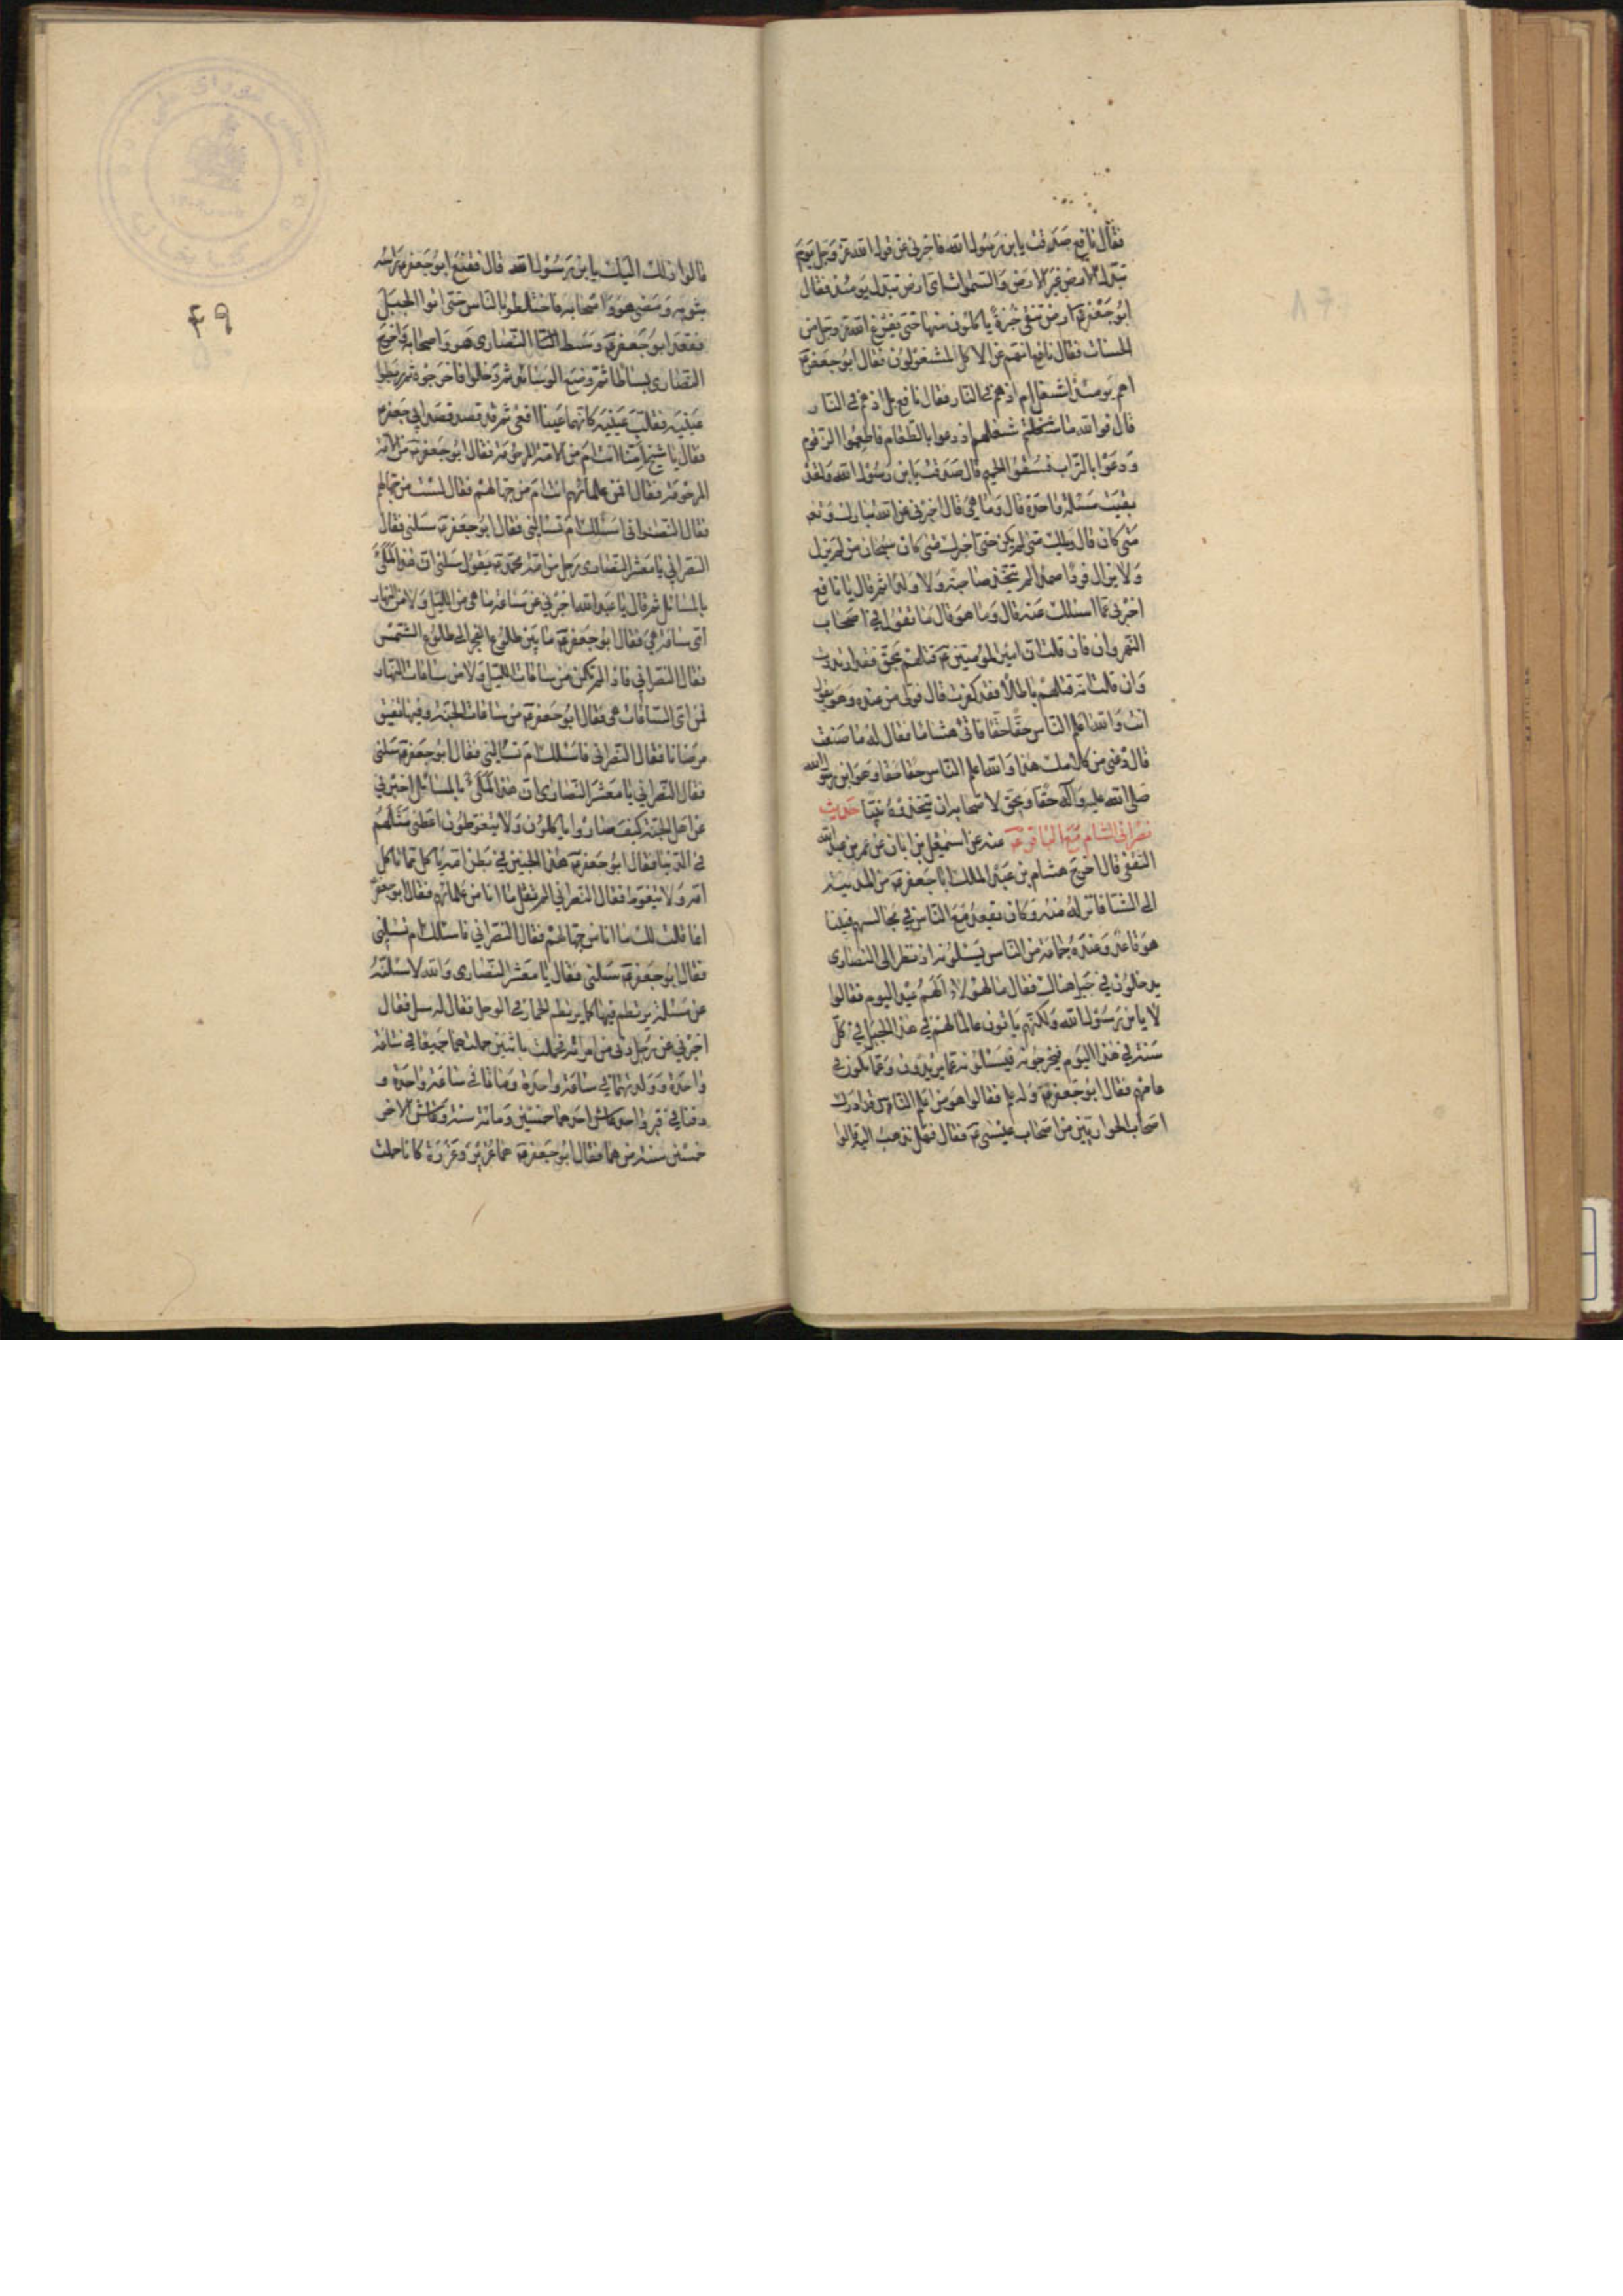 فقال نافع صدقت يا بن رسول الله فاخبرني عن قول الله عز وجل يوم
تبدل الارض غير الارض والسموات اى ارض تبدل يومئذ فقال
ابو جعفر ع ارض تبقى خبزة ياكلون منها حتى يفرغ الله عز وجل من
الحساب فقال نافع انهم عن الاكل لمشغولون فقال ابو جعفر ع
اهم يومئذ اشغل ام اذ هم في النار فقال نافع بل اذ هم في النار
قال فوالله ما شغلهم اذ دعوا بالطعام فاطعموا الزقوم
ودعوا بالشراب فسقوا الحميم قال صدقت يا بن رسول الله ولقد
بقيت مسئلة واحدة قال وما هي قال اخبرني عن الله تبارك وتعالى
متى كان قال ويلك متى لم يكن حتى اخبرك متى كان سبحان من لم يزل
ولا يزال فردا صمدا لم يتخذ صاحبة ولا ولدا ثم قال يا نافع
اخبرني عما اسئلك عنه قال وما هو قال ما تقول في اصحاب
النهروان فان قلت ان امير المؤمنين ع قتلهم بحق فقد ارتددت
وان قلت انه قتلهم باطلا فقد كفرت قال فولى من عنده وهو يقول
انت والله اعلم الناس حقا حقا فاتى هشاما فقال له ما صنعت
قال دعني من كلامك هذا والله اعلم الناس حقا حقا وهو ابن رسول الله
صلى الله عليه وآله حقا ويحق لاصحابه ان يتخذوه نبيا حديث
نصراني الشام مع الباقر ع عنه عن اسمعيل بن ابان عن عمر بن عبد الله
الثقفي قال اخرج هشام بن عبد الملك ابا جعفر ع من المدينة
الى الشام فانزله منه وكان يقعد مع الناس في مجالسهم فبينا
هو قاعد وعنده جماعة من الناس يسئلونه اذ نظر الى النصارى
يدخلون في جبل هناك فقال ما لهؤلاء الهم عيد اليوم فقالوا
لا يا بن رسول الله ولكنهم ياتون عالما لهم في هذا الجبل في كل
سنة في هذا اليوم فيخرجونه فيسئلونه عما يريدون وعما يكون في
عامهم فقال ابو جعفر ع وله علم فقالوا هو من اعلم الناس قد ادرك
اصحاب الحواريين من اصحاب عيسى ع فقال فهل نذهب اليه قالوا
قالوا ذلك اليك يا ابن رسول الله قال فقنع ابو جعفر ع راسه
بثوبه ومضى هو واصحابه فاختلطوا بالناس حتى اتوا الجبل
فقعد ابو جعفر ع وسط النصارى هو واصحابه واخرج
النصارى بساطا ثم وضع الوسائد ثم دخلوا فاخرجوه ثم ربطوا
عينيه فقلب عينيه كانهما عينا افعى ثم قصد قصد ابي جعفر ع
فقال يا شيخ امنا انت ام من الامة المرحومة فقال ابو جعفر ع من الامة
المرحومة فقال افمن علمائهم انت ام من جهالهم فقال لست من جهالهم
فقال النصراني اسئلك ام تسالني فقال ابو جعفر ع سلني فقال
النصراني يا معشر النصارى رجل من امة محمد ص يقول سلني ان هذا لملئ
بالمسائل ثم قال يا عبد الله اخبرني عن ساعة ما هي من الليل ولا من النهار
اى ساعة هي فقال ابو جعفر ع ما بين طلوع الفجر الى طلوع الشمس
فقال النصراني فاذا لم تكن من ساعات الليل ولا من ساعات النهار
فمن اى الساعات هي فقال ابو جعفر ع من ساعات الجنة وفيها تفيق
مرضانا فقال النصراني فاسئلك ام تسالني فقال ابو جعفر ع سلني
فقال النصراني يا معشر النصارى ان هذا لملئ بالمسائل اخبرني
عن اهل الجنة كيف صاروا ياكلون ولا يتغوطون اعطني مثلهم
في الدنيا فقال ابو جعفر ع هذا الجنين في بطن امه ياكل مما تاكل
امه ولا يتغوط فقال النصراني الم تقل ما انا من علمائهم فقال ابو جعفر
انما قلت لك ما انا من جهالهم فقال النصراني فاسئلك ام تسئلني
فقال ابو جعفر ع سلني فقال يا معشر النصارى والله لاسئلنه
عن مسئلة يرتطم فيها كما يرتطم الحمار في الوحل فقال له سل فقال
اخبرني عن رجل دنى من امراته فحملت باثنين حملتهما جميعا في ساعة
واحدة وولدتهما في ساعة واحدة وماتا في ساعة واحدة و
دفنا في قبر واحد عاش احدهما خمسين ومائة سنة وعاش الاخر
خمسين سنة من هما فقال ابو جعفر ع هما عزير وعزرة كانا حملت
۴۹